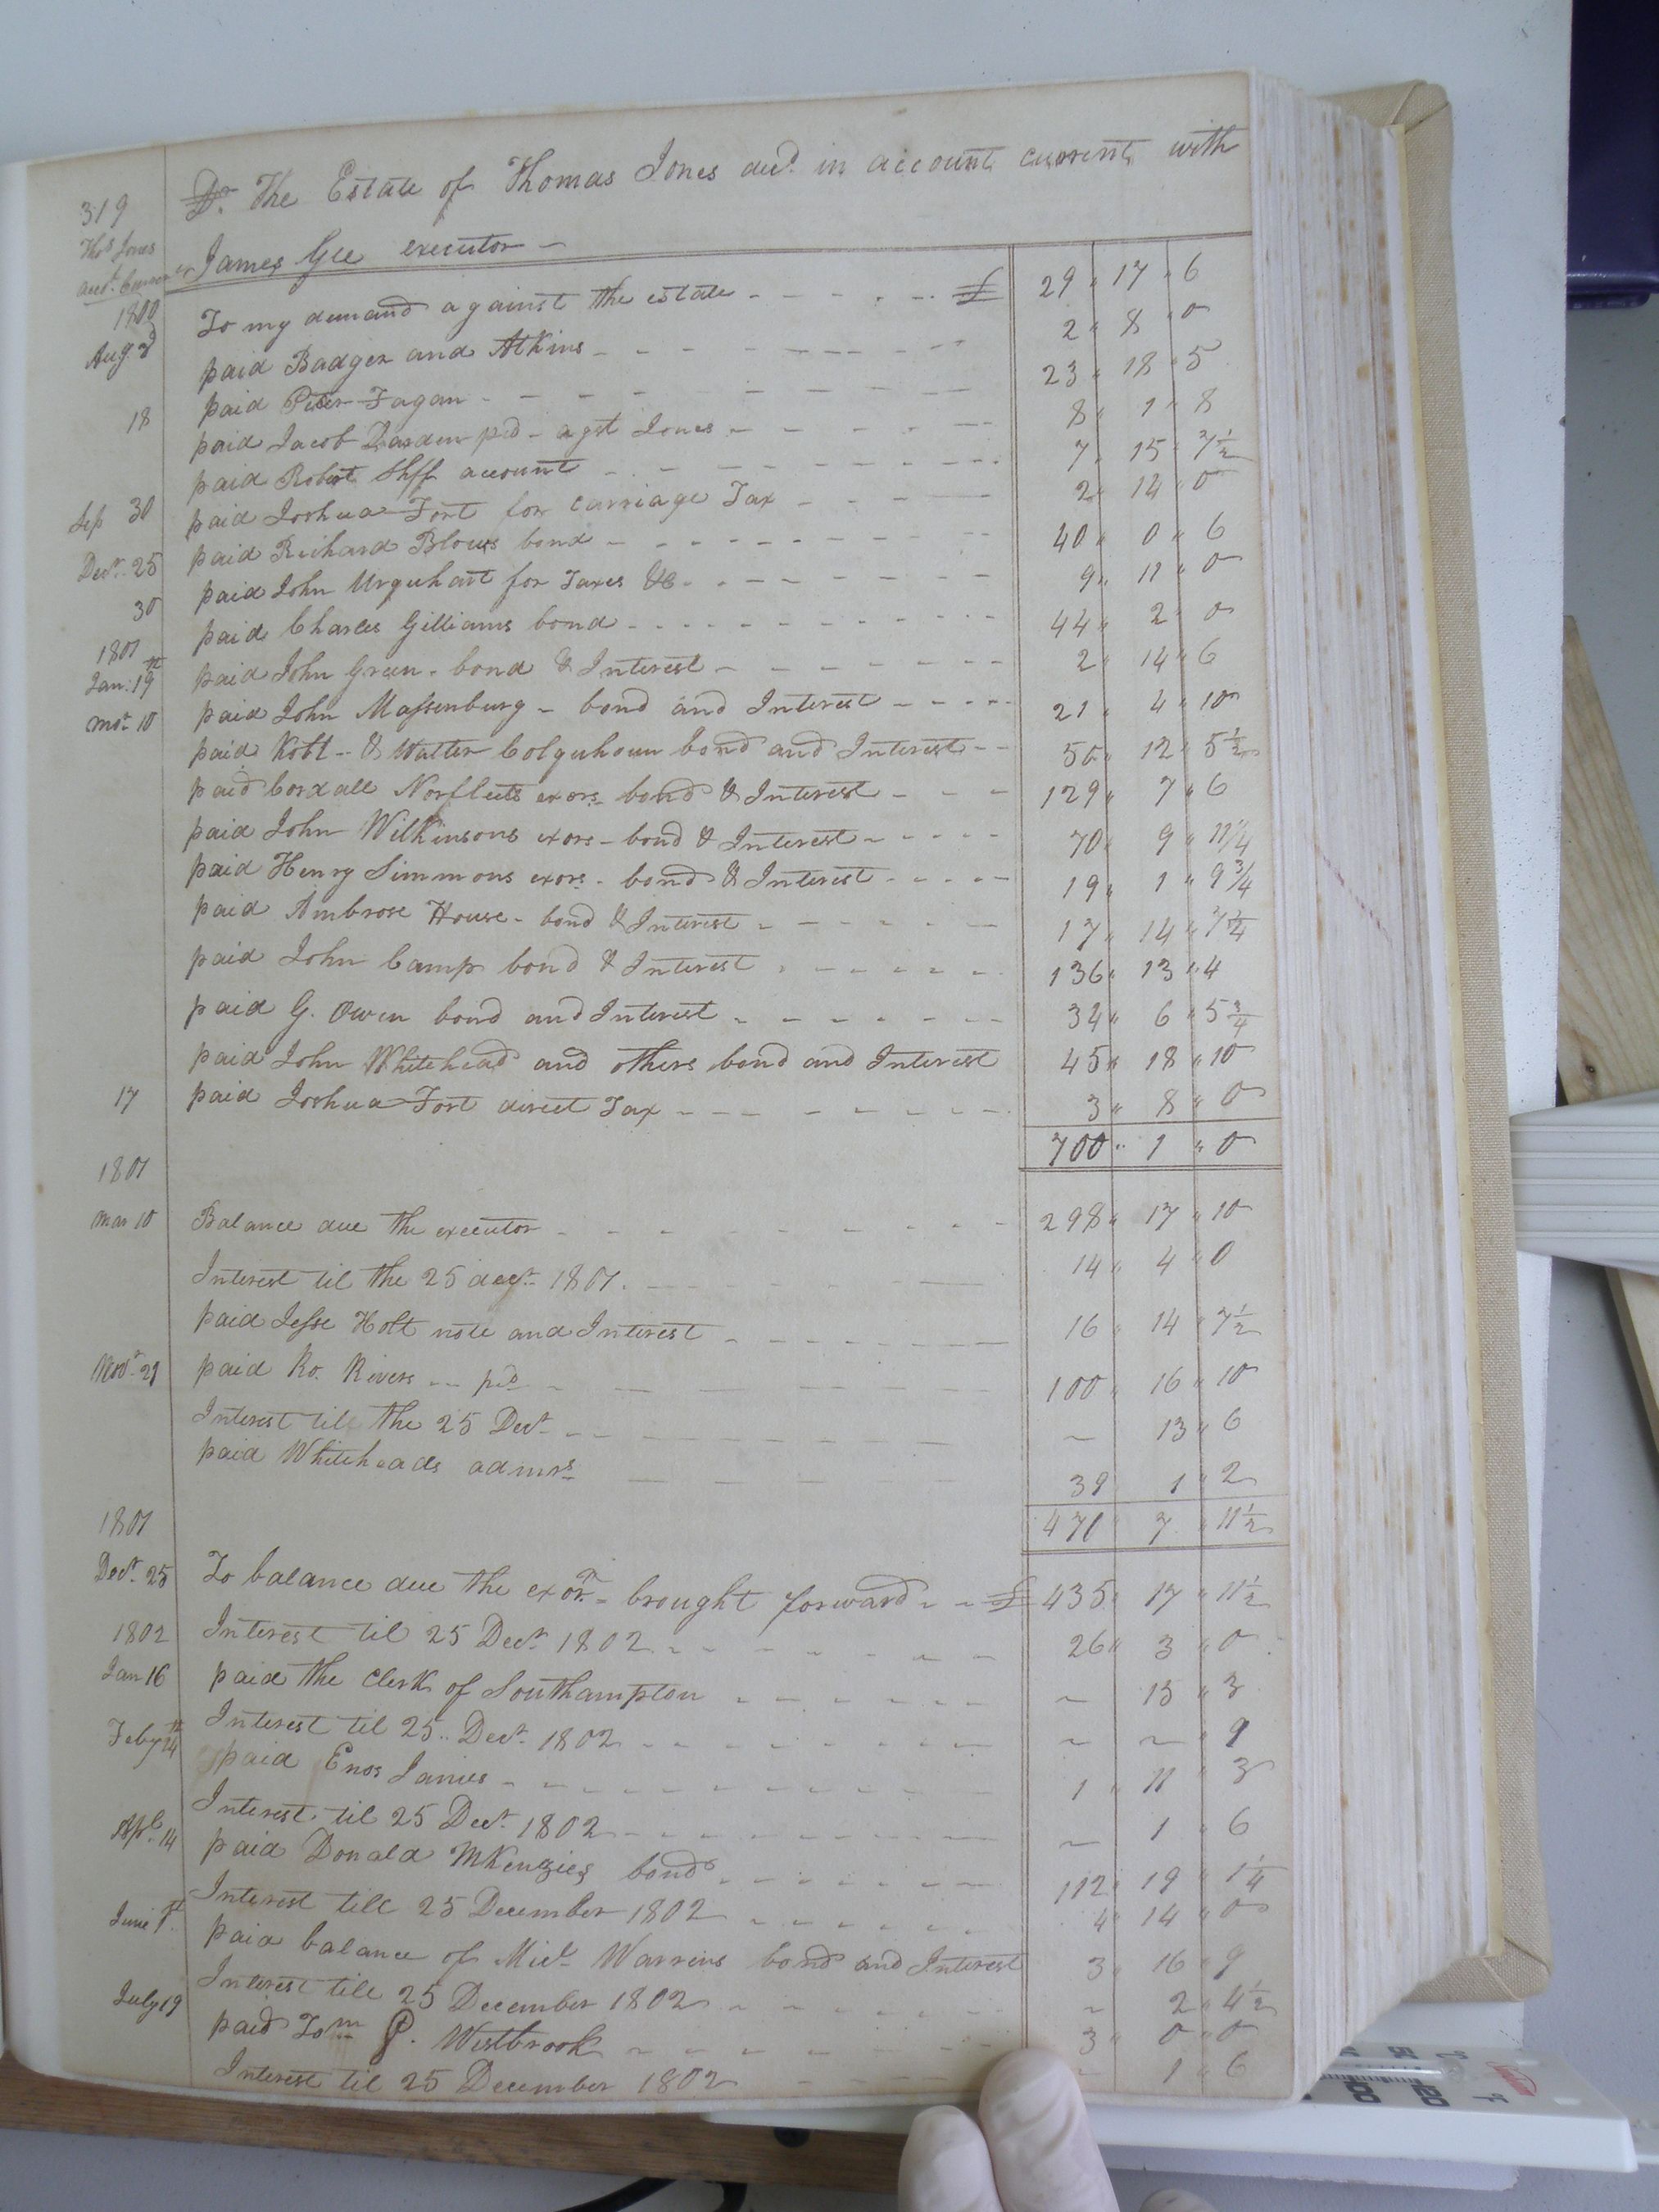 319
Thos Jones
acct. Current
Dr. The Estate of Thomas Jones decd. in account current with
James Gee executor
1800
To my demand against the estate £ 29 " 17 " 6
Aug 2d paid Badger and Atkins 2 " 8 " 0
paid Peter Fagan 23 " 18 " 5
18 paid Jacob Darden pd agst Jones 8 " 1 " 8
paid Robert Shff account 7 " 15 " 7 1/2
Sep 30 paid Joshua Fort for carriage Tax 2 " 14 " 0
Decr. 25 paid Richard Blows bond 40 " 0 " 6
30 paid John Urquhart for Taxes &c. 9 " 11 " 0
paid Charles Gilliams bond 44 " 2 " 0
1801
Jan: 19th paid John Green bond & Interest 2 " 14 " 6
Mar 10 paid John Massenburg bond and Interest 21 " 4 " 10
paid Robt & Walter Colquhoun bond and Interest 50 " 12 " 5 1/2
paid Cordall Norfleets exors bond & Interest 129 " 7 " 6
paid John Wilkinsons exors bond & Interest 70 " 9 " 11 1/4
paid Henry Simmons exors bond & Interest 19 " 1 " 9 3/4
paid Ambrose House bond & Interest 17 " 14 "
paid John Camp bond & Interest 136 " 13 " 4
paid G. Owen bond and Interest 34 " 6 " 5 3/4
paid John Whitehead and others bond and Interest 45 " 18 " 10
17 paid Joshua Fort direct Tax 3 " 8 " 0
700 " 1 " 0
1801
Mar 10 Balance due the executor 298 " 17 " 10
Interest til the 25 decr. 1801. 14 " 4 " 0
paid Jesse Holt note and Interest 16 " 14 " 7 1/2
Novr. 21 paid Ro. Rivers pd 100 " 16 " 10
Interest till the 25 Decr. 13 " 6
paid Whiteheads admrs 39 " 1 " 2
470 " 7 " 11 1/2
1801
Decr. 25 To balance due the exor. brought forward £ 435 " 17 " 11 1/2
1802 Interest til 25 Decr. 1802 26 " 3 " 0
Jan 16 paid the Clerk of Southampton 15 " 3
Interest til 25 Decr. 1802 9
Feby 24th paid Enos James 1 " 11 " 3
Interest til 25 Decr. 1802 1 " 6
Apl. 14 paid Donald McKenzies bond 112 " 19 " 1 1/4
Interest till 25 December 1802 4 " 14 " 0
June 1st. paid balance of Micl. Warrens bond and Interest 3 " 16 " 9
Interest till 25 December 1802 2 " 4 1/2
July 19 paid P. Westbrook 3 " 0 " 0
Interest til 25 December 1802 1 " 6